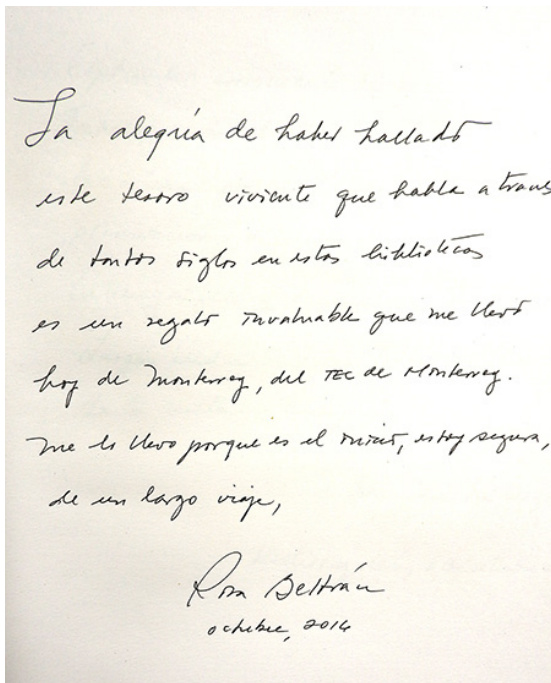 La alegría de haber hallado
este tesoro viviente que habla a través
de tantos siglos en estas bibliotecas
es un regalo invaluable que me llevo
hoy de Monterrey, del TEC de Monterrey.
me lo llevo porque es el inicio, estoy segura,
de un largo viaje,
Rosa Beltrán
octubre, 2014